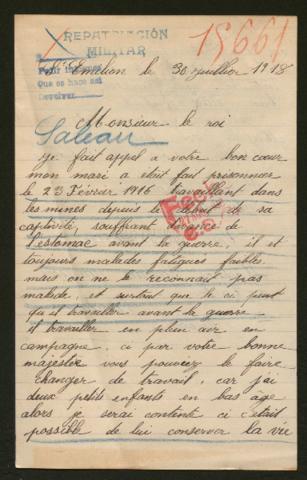 REPATRIACIÓN
MILITAR
15661
Que se hace así
St Emilion le 30 juillet 1918
Monsieur le roi
Saleau
je fait appel a votre bon cœur
mon mari a etait fait prisonnier
le 23 Fevrier 1916 travaillant dans
les mines depuis le debut de sa
captivité, souffrant de
l'estomac avant la guerre, il et
toujours malade fatigues faibles
mais on ne le reconnait pas
malade et surtout que le ci peut
qu'il travailler avant la guerre
il travailler en plein air en
campagne, ci par votre bonne
majester vous pouviez le faire
changer de travail, car j'ai
deux petits enfants en bas age
alors je serai contente ci c'était
possible de lui conserver la vie